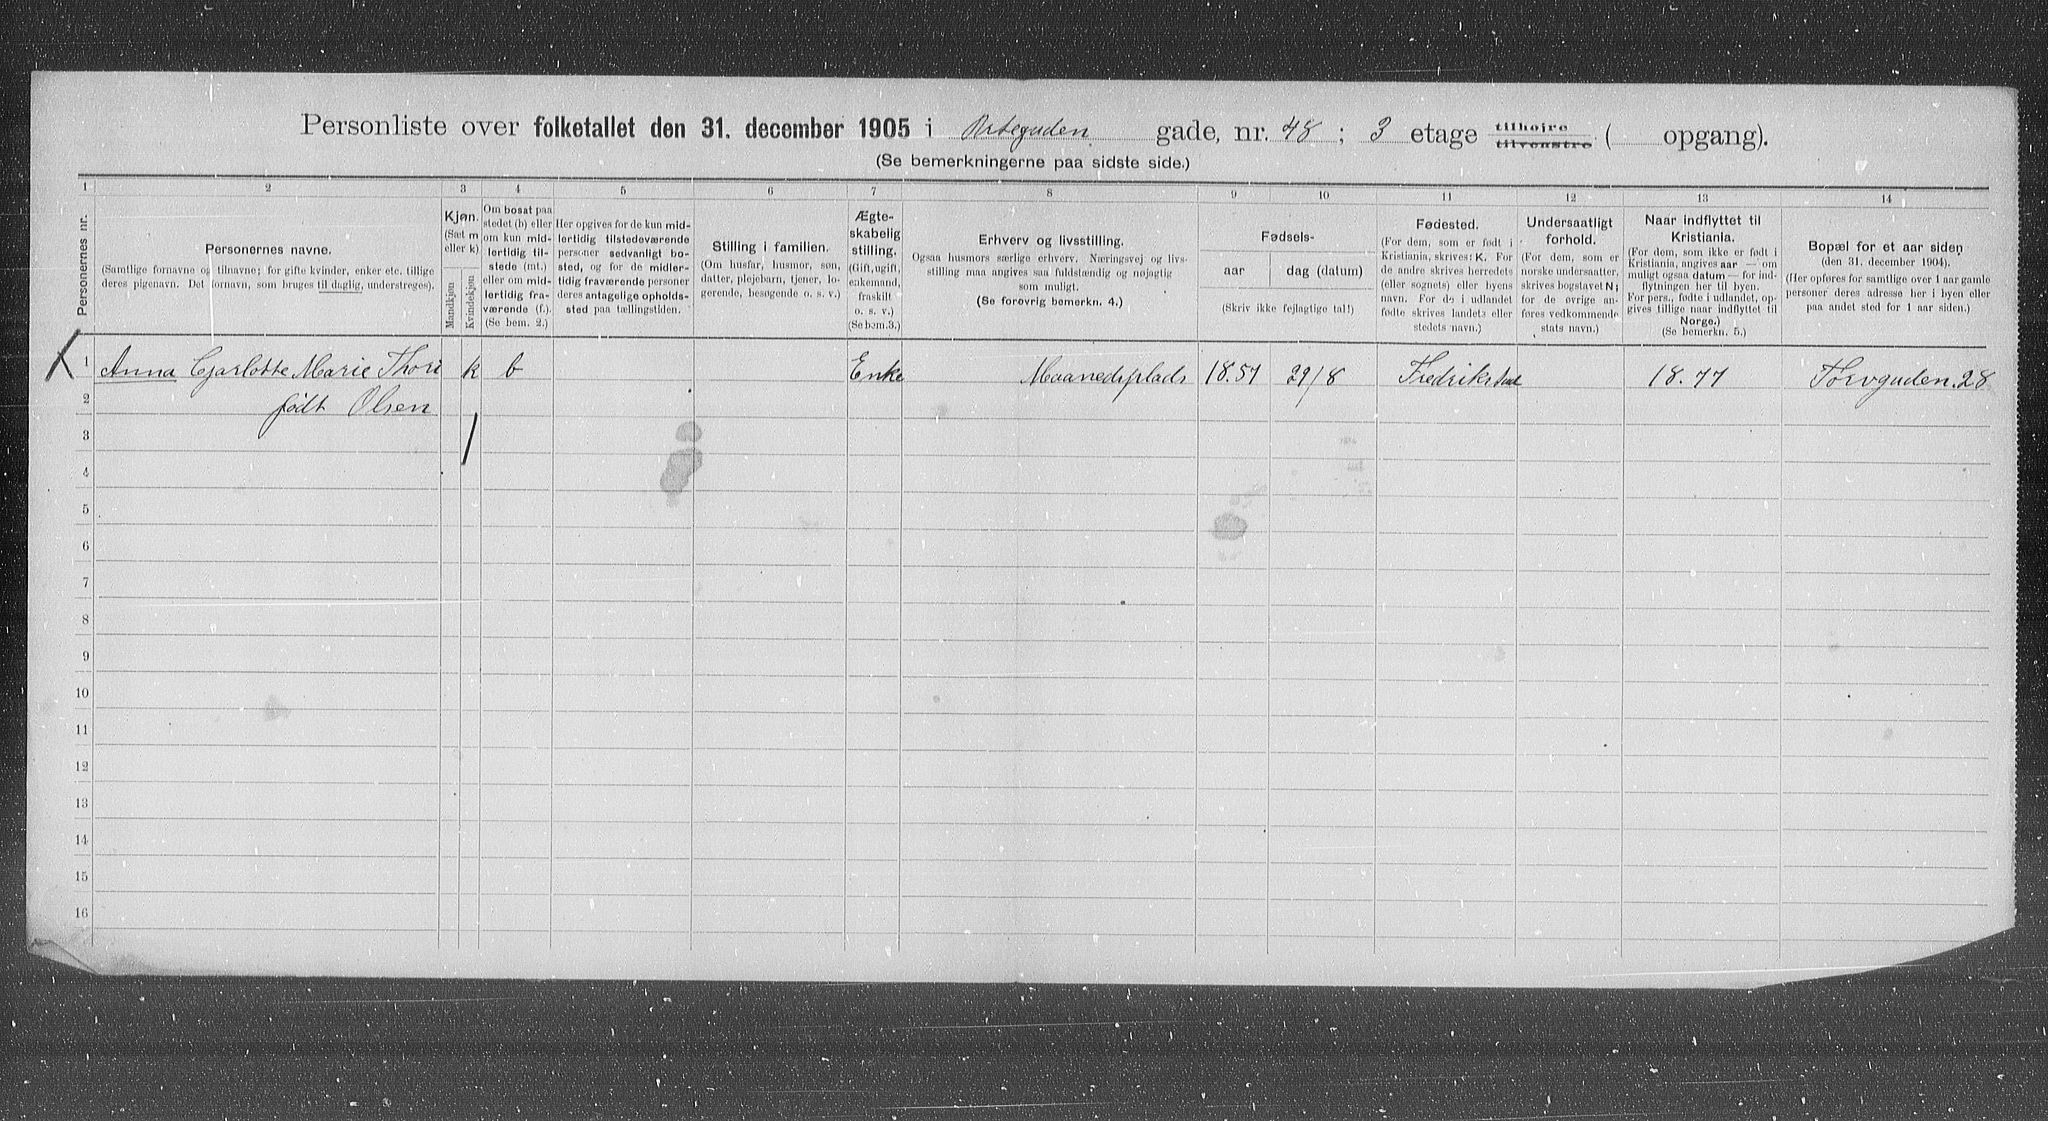 Personliste over folketallet den 31. december 1905 i Osteguden gade, nr. 48 ; 3 etage tilhøjre tilvenstre ( opgang).
(Se bemerkningerne paa sidste side.)
1 2 3 4 5 6 7 8 9 10 11 12 13 14
Personernes nr.
Personernes navne.
(Samtlige fornavne og tilnavne; for gifte kvinder, enker etc. tillige
deres pigenavn. Det fornavn, som bruges til daglig, understreges).
Kjøn.
(Sæt m
eller k)
Mandkjøn
Kvindekjøn
Om bosat paa
stedet (b) eller
om kun mid-
lertidig til-
stede (mt.)
eller om mid-
lertidig fra-
værende (f.).
(Se bem. 2.)
Her opgives for de kun mid-
lertidig tilstedeværende
personer sedvanligt bo-
sted, og for de midler-
tidig fraværende personer
deres antagelige opholds-
sted paa tællingstiden.
Stilling i familien.
(Om husfar, husmor, søn,
datter, plejebarn, tjener, lo-
gerende, besøgende o. s. v.)
Ægte-
skabelig
stilling.
(Gift, ugift,
enkemand,
fraskilt
o. s. v.)
(Se bem. 3.)
Erhverv og livsstilling.
Ogsaa husmors særlige erhverv. Næringsvej og livs-
stilling maa angives saa fuldstændig og nøjagtig
som muligt.
(Se forøvrig bemerkn. 4.)
Fødsels-
aar
dag (datum)
(Skriv ikke fejlagtige tal!)
Fødested.
(For dem, som er født i
Kristiania, skrives: K. For
de andre skrives herredets
(eller sognets) eller byens
navn. For de i udlandet
fødte skrives landets eller
stedets navn.)
Undersaatligt
forhold.
(For dem, som er
norske undersaatter,
skrives bogstavet N;
for de øvrige an-
føres vedkommende
stats navn.)
Naar indflyttet til
Kristiania.
(For dem, som ikke er født i
Kristiania, angives aar — om
muligt ogsaa datum — for ind-
flytningen her til byen.
For pers., fødte i udlandet, op-
gives tillige naar indflyttet til
Norge.)
(Se bemerkn. 5.)
Bopæl for et aar siden
(den 31. december 1904).
(Her opføres for samtlige over 1 aar gamle
personer deres adresse her i byen eller
paa andet sted for 1 aar siden.)
1 Anna Charlotte Marie Thori k b Enke Maanedsplads 18.51 29/8 Fredrikstad 18.77 Torvguden. 28
2 født Olsen
3
4
5
6
7
8
9
10
11
12
13
14
15
16